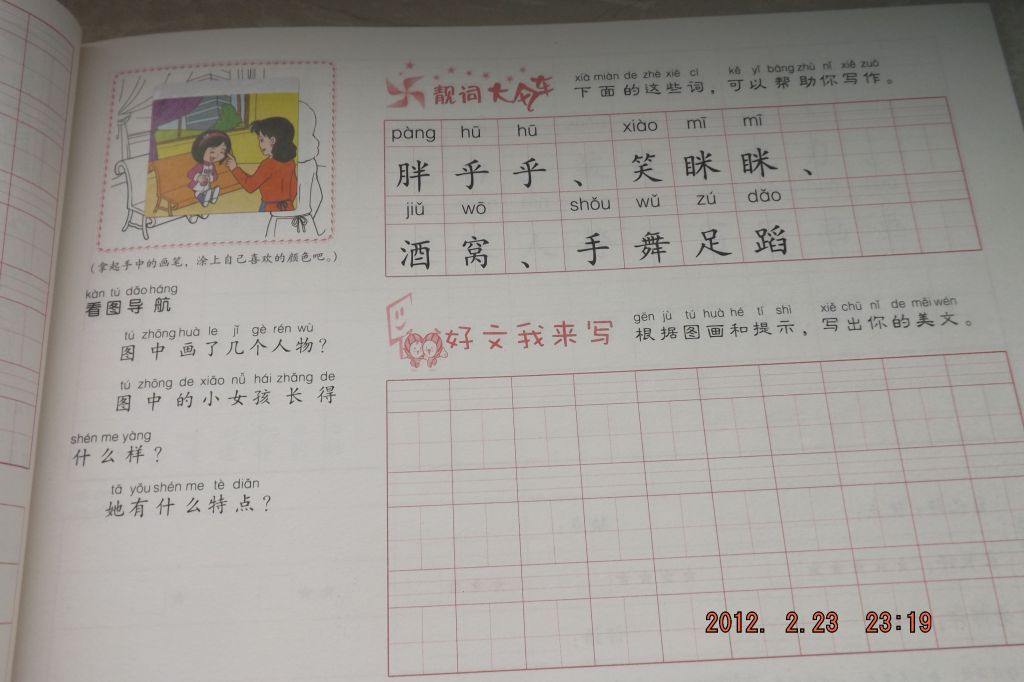 (拿起手中的画笔，涂上自己喜欢的颜色吧。)
kàn tú dǎo háng
看图导航
tú zhōng huà le jǐ gè rén wù
图中画了几个人物？
tú zhōng de xiǎo nǚ hái zhǎng de
图中的小女孩长得
shén me yàng
什么样？
tā yǒu shén me tè diǎn
她有什么特点？
靓词大风车
xià miàn de zhè xiē cí kě yǐ bāng zhù nǐ xiě zuò
下面的这些词，可以帮助你写作。
pàng hū hū xiào mī mī
胖乎乎、笑眯眯、
jiǔ wō shǒu wǔ zú dǎo
酒窝、手舞足蹈
好文我来写
gēn jù tú huà hé tí shì xiě chū nǐ de měi wén
根据图画和提示，写出你的美文。
2012. 2.23 23:19